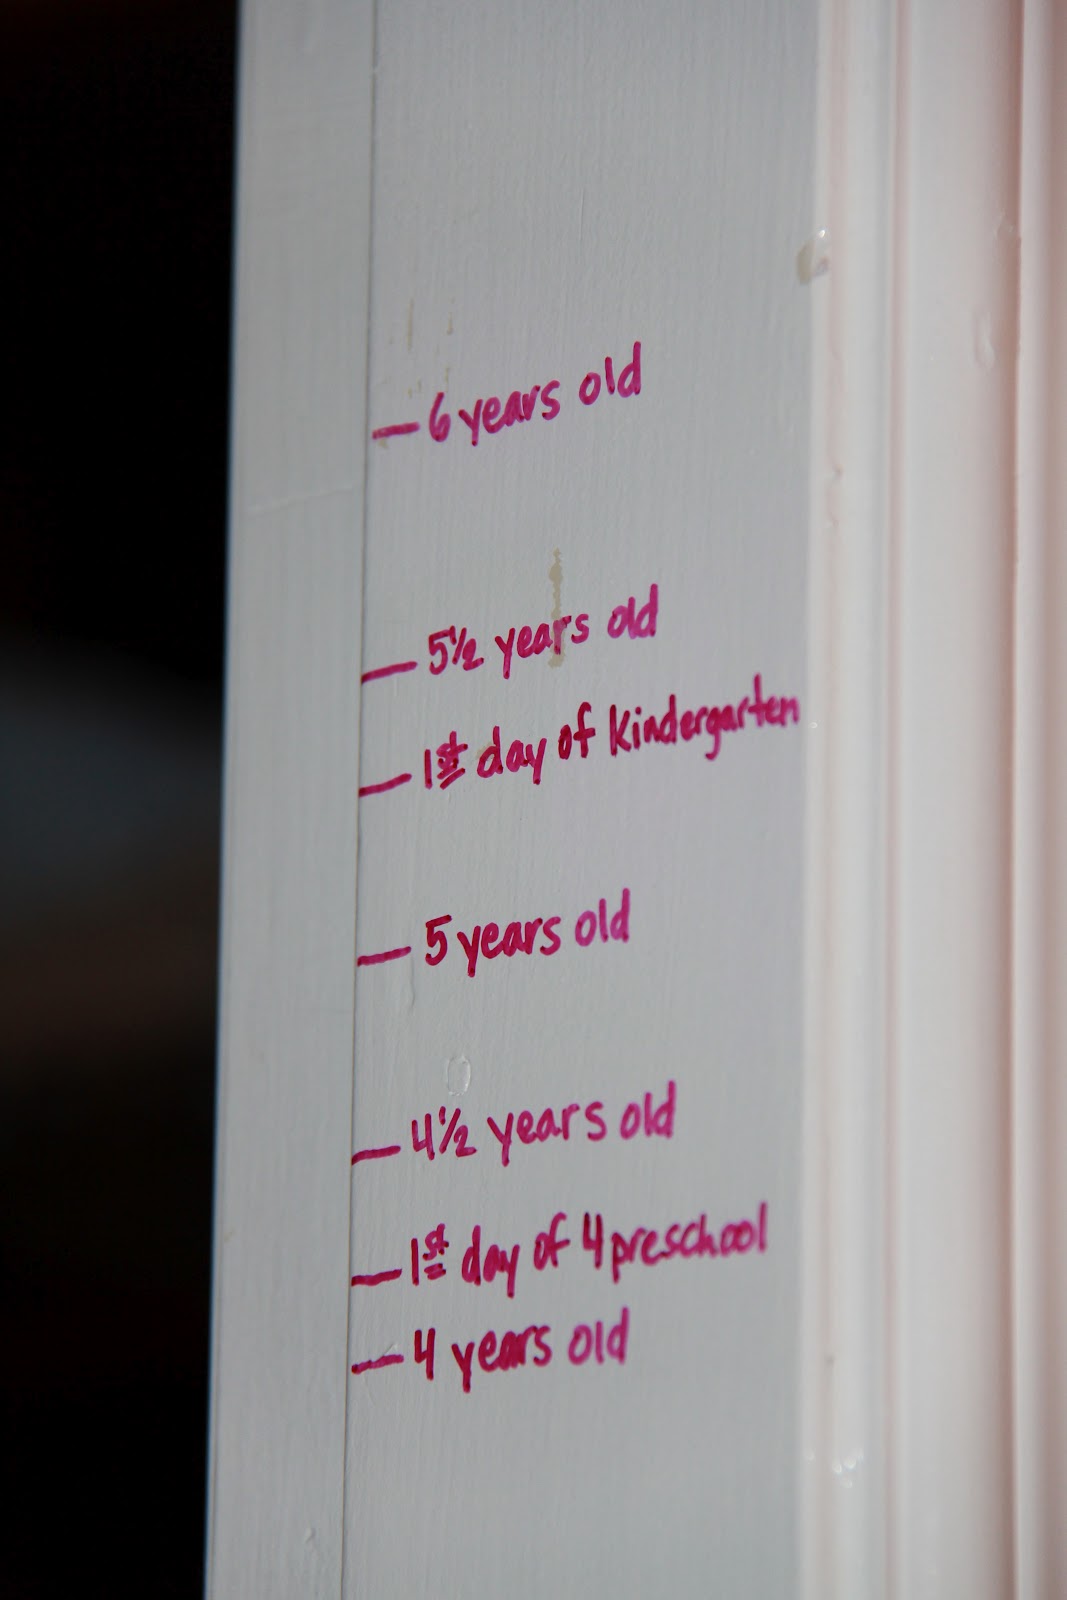 6 years old
5½ years old
1st day of Kindergarten
5 years old
4½ years old
1st day of 4 preschool
4 years old